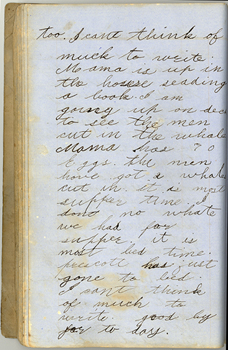 too. I cant think of
much to write.
Mama is up in
the house reading
a book. I am
going up on deck
to see the men
cut in the whale
Mama has 70
Eggs. the men
have got a whale
cut in. it is most
supper time. I
dont no whate
we had for
supper. it is
most bed time.
prescott has just
gone to bed.
I cant think
of much to
write. good by
for to day.